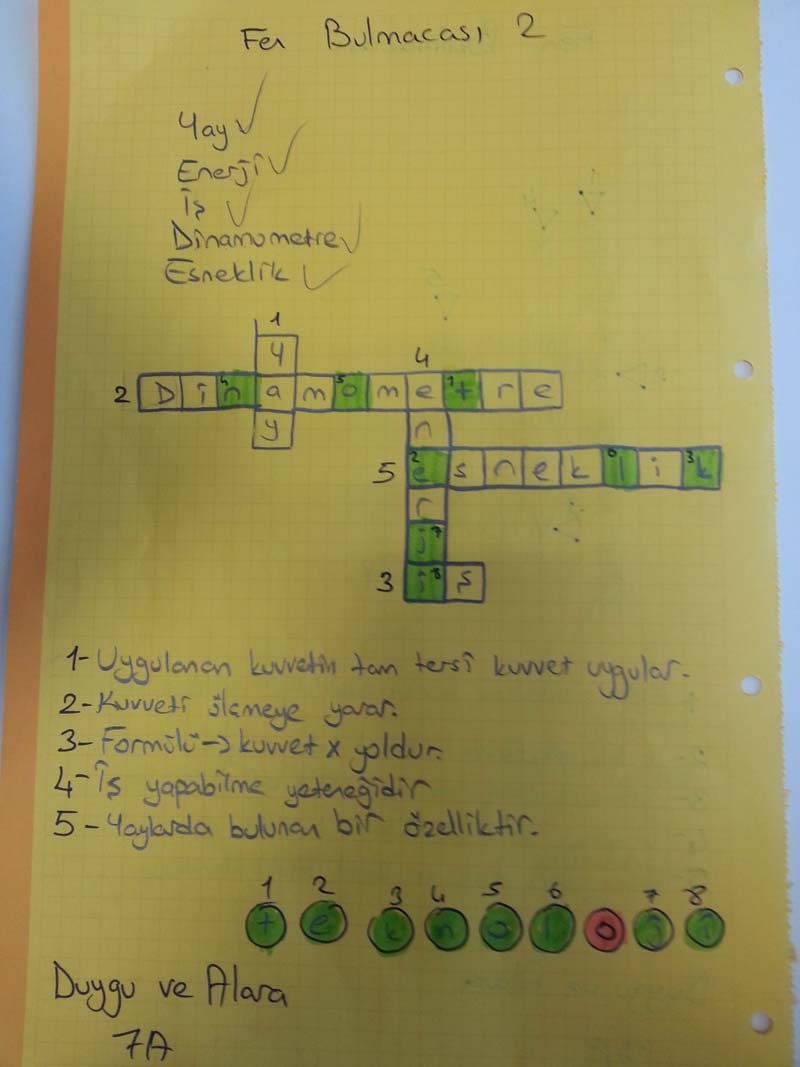 Fen Bulmacası 2
Yay
Enerji
İş
Dinamometre
Esneklik
1
y
4
2 Dinamometre
y
n
5 esneklik
r
j
3 iş
1- Uygulanan kuvvetin tam tersi kuvvet uygular.
2- Kuvveti ölçmeye yarar.
3- Formülü -> kuvvet x yoldur.
4- İş yapabilme yeteneğidir
5- Yaylarda bulunan bir özelliktir.
1 2 3 4 5 6 7 8
t e k n o l o j i
Duygu ve Alara
7A